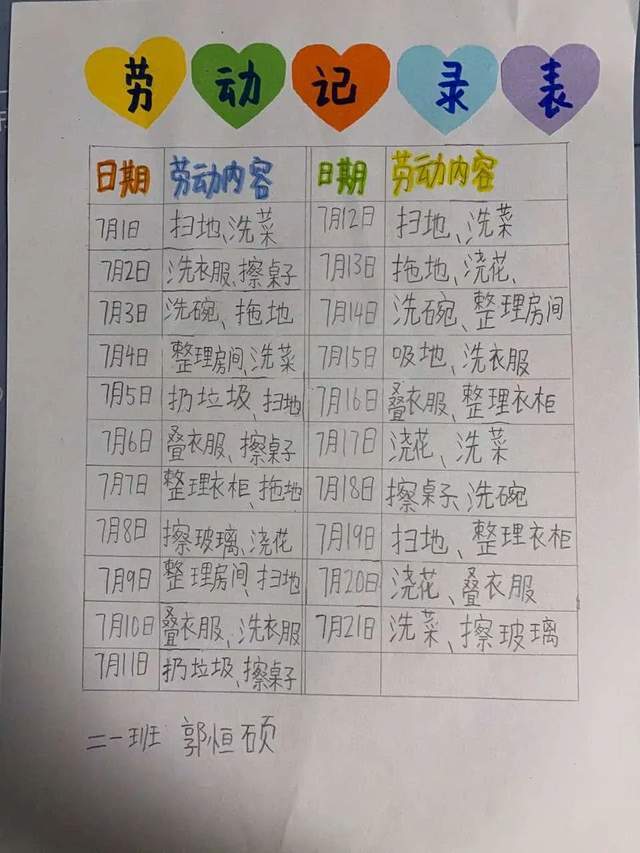 劳动记录表
日期 劳动内容 日期 劳动内容
7月1日 扫地、洗菜 7月12日 扫地、洗菜
7月2日 洗衣服、擦桌子 7月13日 拖地、浇花、
7月3日 洗碗、拖地 7月14日 洗碗、整理房间
7月4日 整理房间、洗菜 7月15日 吸地、洗衣服
7月5日 扔垃圾、扫地 7月16日 叠衣服、整理衣柜
7月6日 叠衣服、擦桌子 7月17日 浇花、洗菜
7月7日 整理衣柜、拖地 7月18日 擦桌子、洗碗
7月8日 擦玻璃、浇花 7月19日 扫地、整理衣柜
7月9日 整理房间、扫地 7月20日 浇花、叠衣服
7月10日 叠衣服、洗衣服 7月21日 洗菜、擦玻璃
7月11日 扔垃圾、擦桌子
二一班 郭恒硕